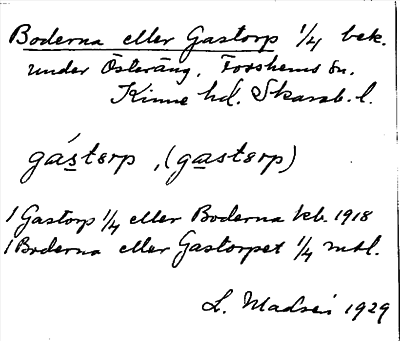 Boderna eller Gastorp 1/4 bek.
under Österäng, Forshems sn.
Kinne hd. Skarab. l.
gástorp, (gastorp)
1 Gastorp 1/4 eller Boderna kb. 1918
1 Boderna eller Gastorpet 1/4 mtl.
L. Madsén 1929